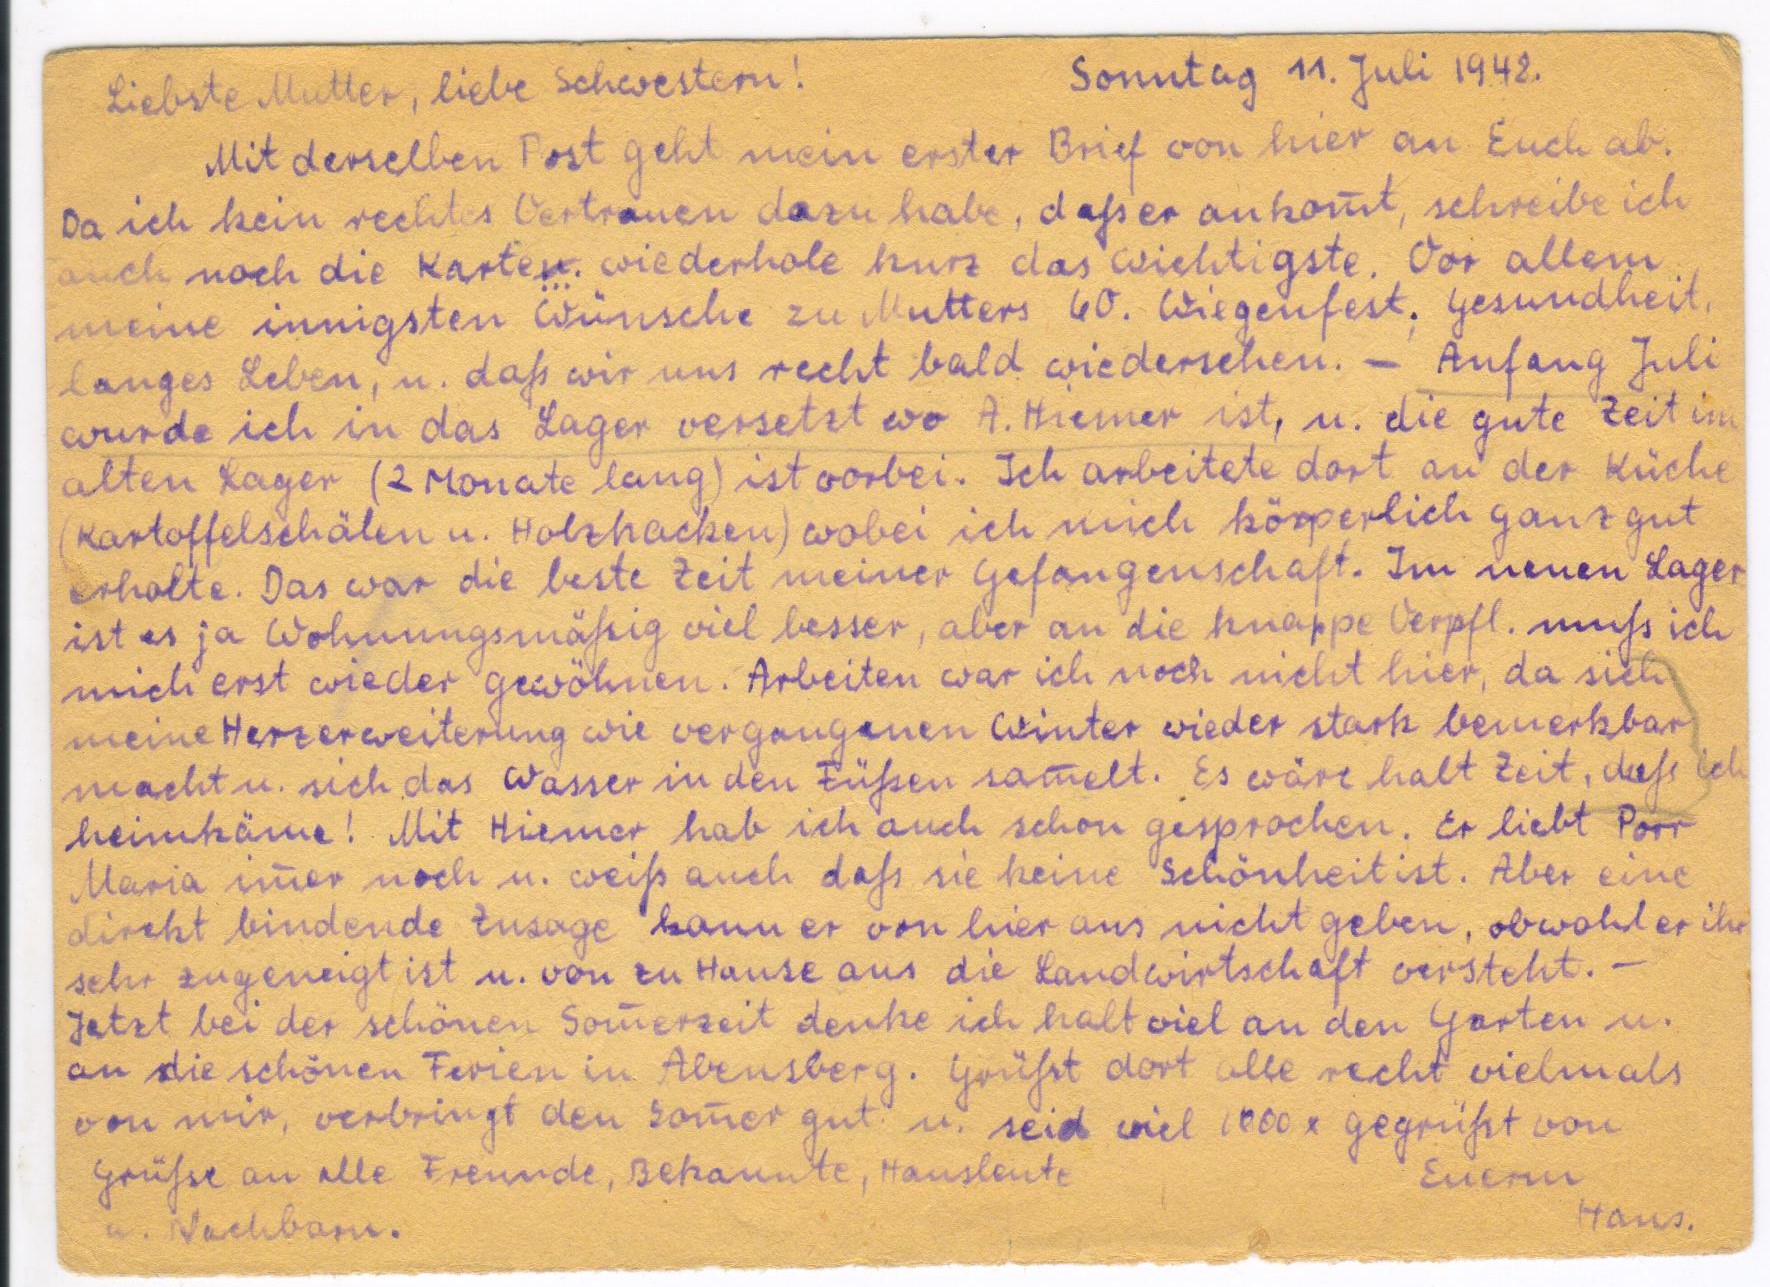 Liebste Mutter, liebe Schwestern! Sonntag 11. Juli 1948.
Mit derselben Post geht mein erster Brief von hier an Euch ab.
Da ich kein rechtes Vertrauen dazu habe, daß er ankom̅t, schreibe ich
auch noch die Karte u. wiederhole kurz das Wichtigste. Vor allem
meine innigsten Wünsche zu Mutters 60. Wiegenfest, Gesundheit,
langes Leben, u. daß wir uns recht bald wiedersehen. – Anfang Juli
wurde ich in das Lager versetzt wo A. Hiemer ist, u. die gute Zeit im
alten Lager (2 Monate lang) ist vorbei. Ich arbeitete dort an der Küche
(Kartoffelschälen u. Holzhacken) wobei ich mich körperlich ganz gut
erholte. Das war die beste Zeit meiner Gefangenschaft. Im neuen Lager
ist es ja Wohnungsmäßig viel besser, aber an die knappe Verpfl. muß ich
mich erst wieder gewöhnen. Arbeiten war ich noch nicht hier, da sich
meine Herzerweiterung wie vergangenen Winter wieder stark bemerkbar
macht u. sich das Wasser in den Füßen sam̅elt. Es wäre halt Zeit, daß ich
heimkäme! Mit Hiemer hab ich auch schon gesprochen. Er liebt Porr
Maria im̅er noch u. weiß auch daß sie keine Schönheit ist. Aber eine
direkt bindende Zusage kann er von hier aus nicht geben, obwohl er ihr
sehr zugeneigt ist u. von zu Hause aus die Landwirtschaft versteht. –
Jetzt bei der schönen Som̅erzeit denke ich halt viel an den Garten u.
an die schönen Ferien in Abensberg. Grüßt dort alle recht vielmals
von mir, verbringt den Som̅er gut u. seid viel 1000 x gegrüßt von
Grüße an alle Freunde, Bekannte, Hausleute Euerm
u. Nachbarn. Hans.